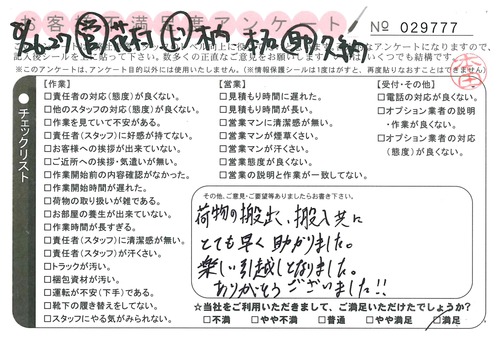 お客様不満足度アンケート
No 029777
8/26-27 営
記入後シールを上に貼って下さい。数多くの正直なご意見をお願い
いくつでも結構です。
(※このアンケートは、アンケート目的以外には使用いたしません。)(※情報保護シールは1度はがすと、再度貼りなおすことはできません)
チェックリスト
【作業】
□責任者の対応(態度)が良くない。
□他のスタッフの対応(態度)が良くない。
□作業を見ていて不安がある。
□責任者(スタッフ)に好感が持てない。
□お客様への挨拶が出来ていない。
□ご近所への挨拶・気遣いが無い。
□作業開始前の内容確認がなかった。
□作業開始時間が遅れた。
□荷物の取り扱いが雑である。
□お部屋の養生が出来ていない。
□作業時間が長すぎる。
□責任者(スタッフ)に清潔感が無い。
□責任者(スタッフ)が汗くさい。
□トラックが汚い。
□梱包資材が汚い。
□運転が不安(下手)である。
□靴下の履き替えをしてない。
□スタッフにやる気がみられない。
【営業】
□見積もり時間に遅れた。
□見積もり時間が長い。
□営業マンに清潔感が無い。
□営業マンが煙草くさい。
□営業マンが汗くさい。
□営業態度が良くない。
□営業の説明と作業が一致してない。
【受付・その他】
□電話の対応が良くない。
□オプション業者の説明
・作業が良くない。
□オプション業者の対応
(態度)が良くない。
その他、ご意見・ご要望等ありましたらお書き下さい。
荷物の搬出、搬入共に
とても早く助かりました。
楽しい引越しとなりました。
ありがとうございました!!
☆当社をご利用いただきまして、ご満足いただけたでしょうか?
□不満 □やや不満 □普通 □やや満足 □満足